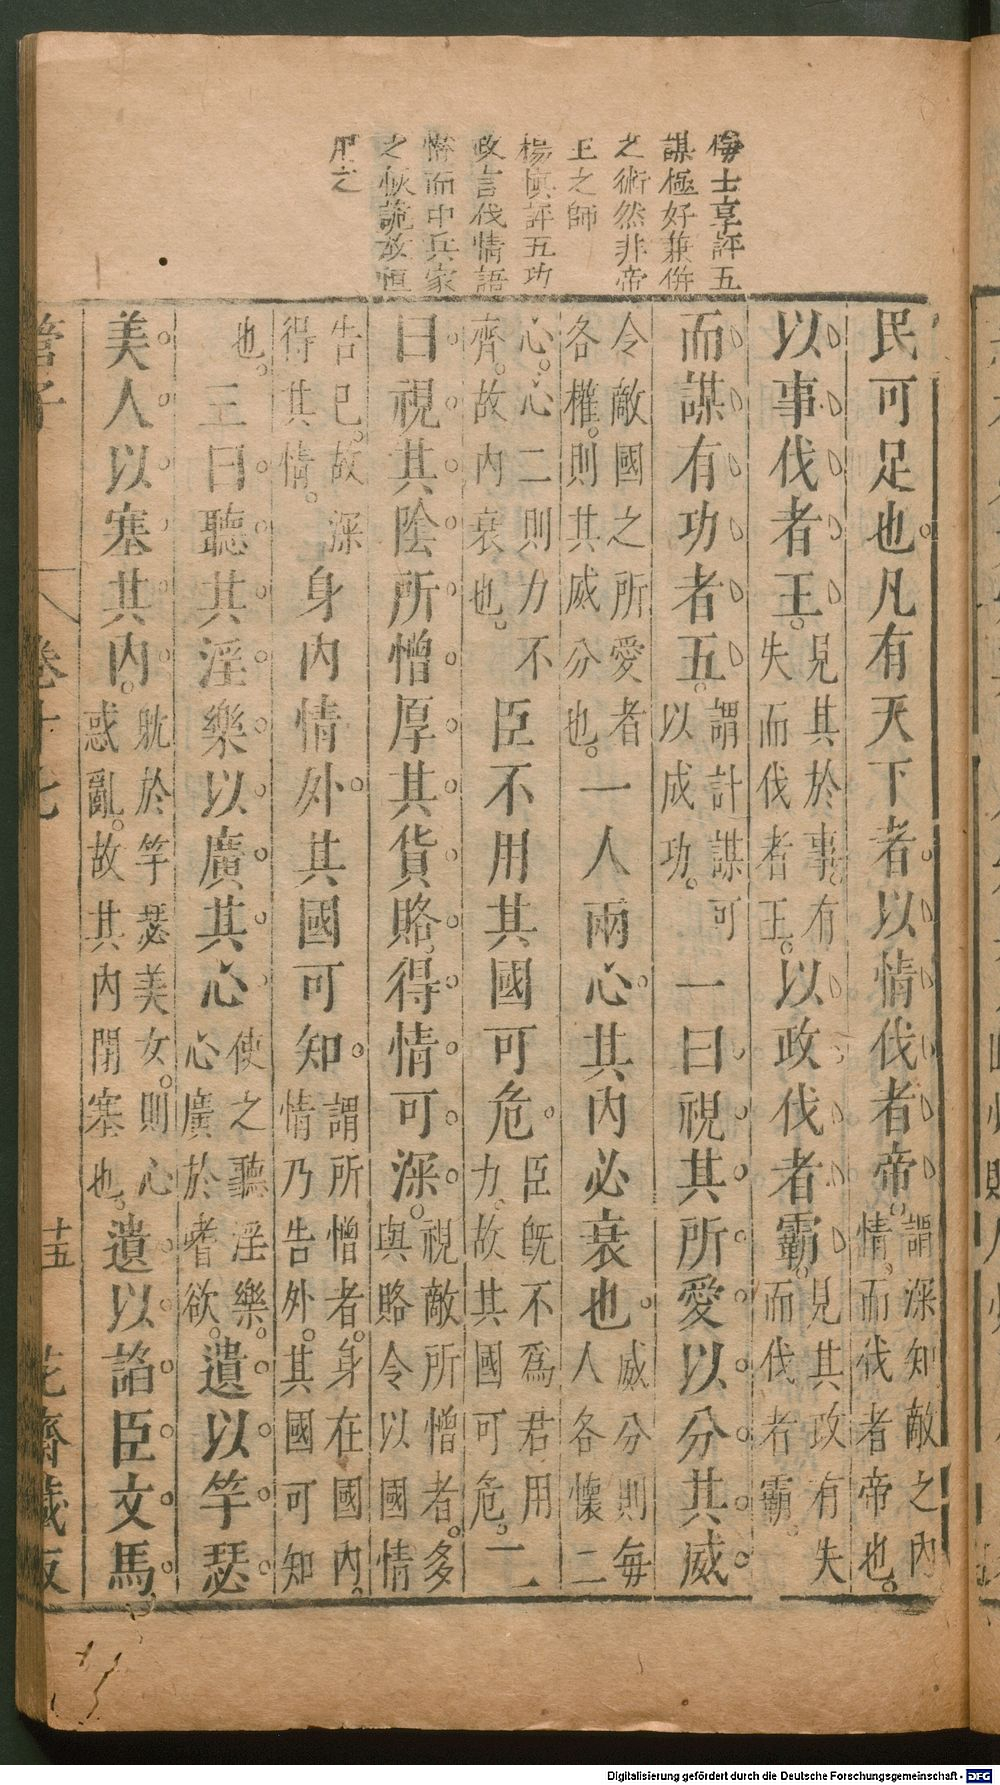 梅士享評五
謀極好兼併
之術然非帝
王之師
楊慎評五功
政言伐情語
情而中兵家
之秘詭故恒
用之
民可足也。凡有天下者。以情伐者帝。謂深知敵之內情。而伐者帝也。
以事伐者王。見其於事。有失而伐者王。以政伐者霸。見其政有失而伐者霸。
而謀有功者五。謂計謀可以成功。一曰視其所愛。以分其威。
令敵國之所愛者各權。則其威分也。一人兩心。其內必衰也。威分則每人各懷二
心。心二則力不齊。故內衰也。臣不用其國可危。臣旣不爲君用力。故其國可危。二
曰視其陰所憎。厚其貨賂。得情可深。視敵所憎者。多與賂令以國情
告已。故深得其情。身內情外。其國可知。謂所憎者。身在國內。情乃告外。其國可知
也。三曰聽其淫樂。以廣其心。使之聽淫樂。心廣於耆欲。遺以竽瑟
美人。以塞其內。耽於竽瑟美女。則心惑亂。故其內閉塞也。遺以諂臣文馬
管子 卷十七 十五 花齋藏板
Digitalisierung gefördert durch die Deutsche Forschungsgemeinschaft - DFG